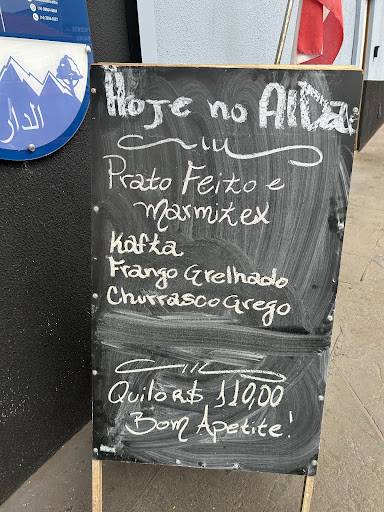 الدار
Hoje no AlDar
Prato Feito e
Marmitex
Kafta
Frango Grelhado
Churrasco Grego
Quilo R$ 110,00
Bom Apetite!